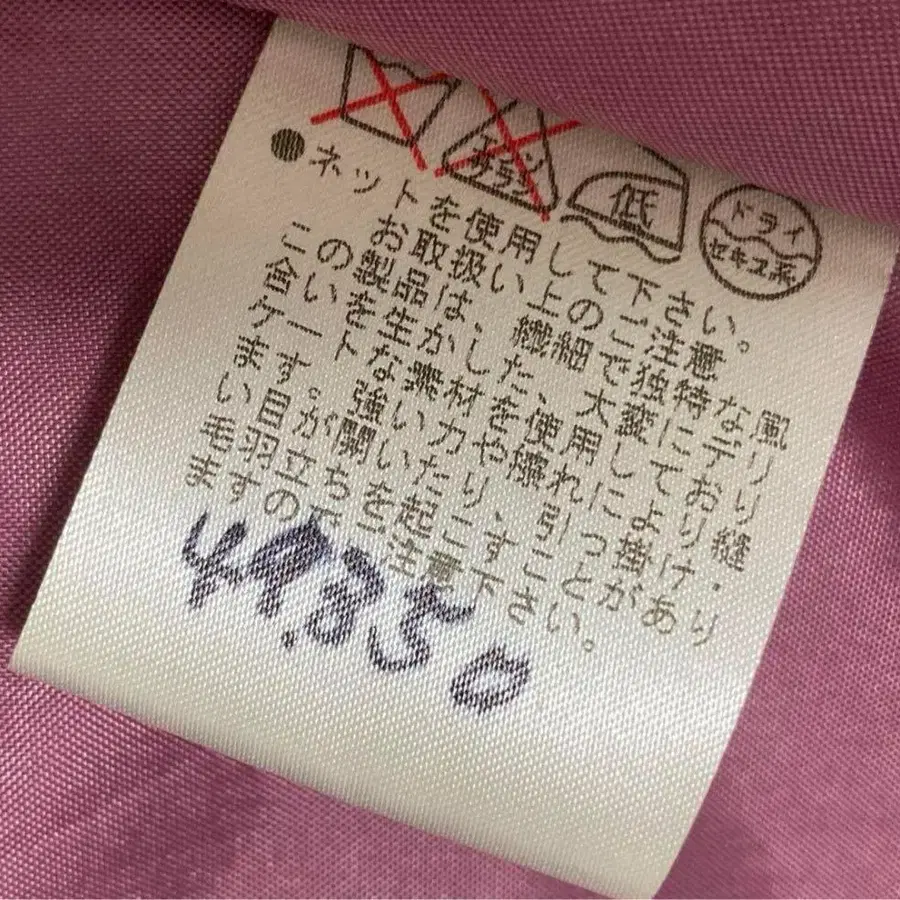 エンソ
サラシ
低
ドライ
セキユ系
●ネットを使用して下さい。
お取扱い上のご注意
この製品は、繊細で独特な風
合いを生かした、大変にデリ
ケートな素材を使用しており
ます。強い力や擦れにより縫
い目が開いたり、引っ掛け・
毛羽立ちを起こすことがあり
ますのでご注意下さい。
49,850